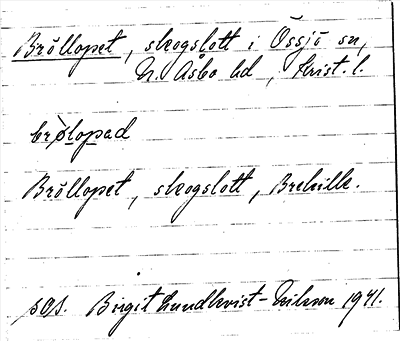 Bröllopet, skogslott i Össjö sn,
N. Åsbo hd, Krist. l.
brø̀lopad
Bröllopet, skogslott, Brehille.
sös. Birgit Lundkvist-Nilsson 1941.